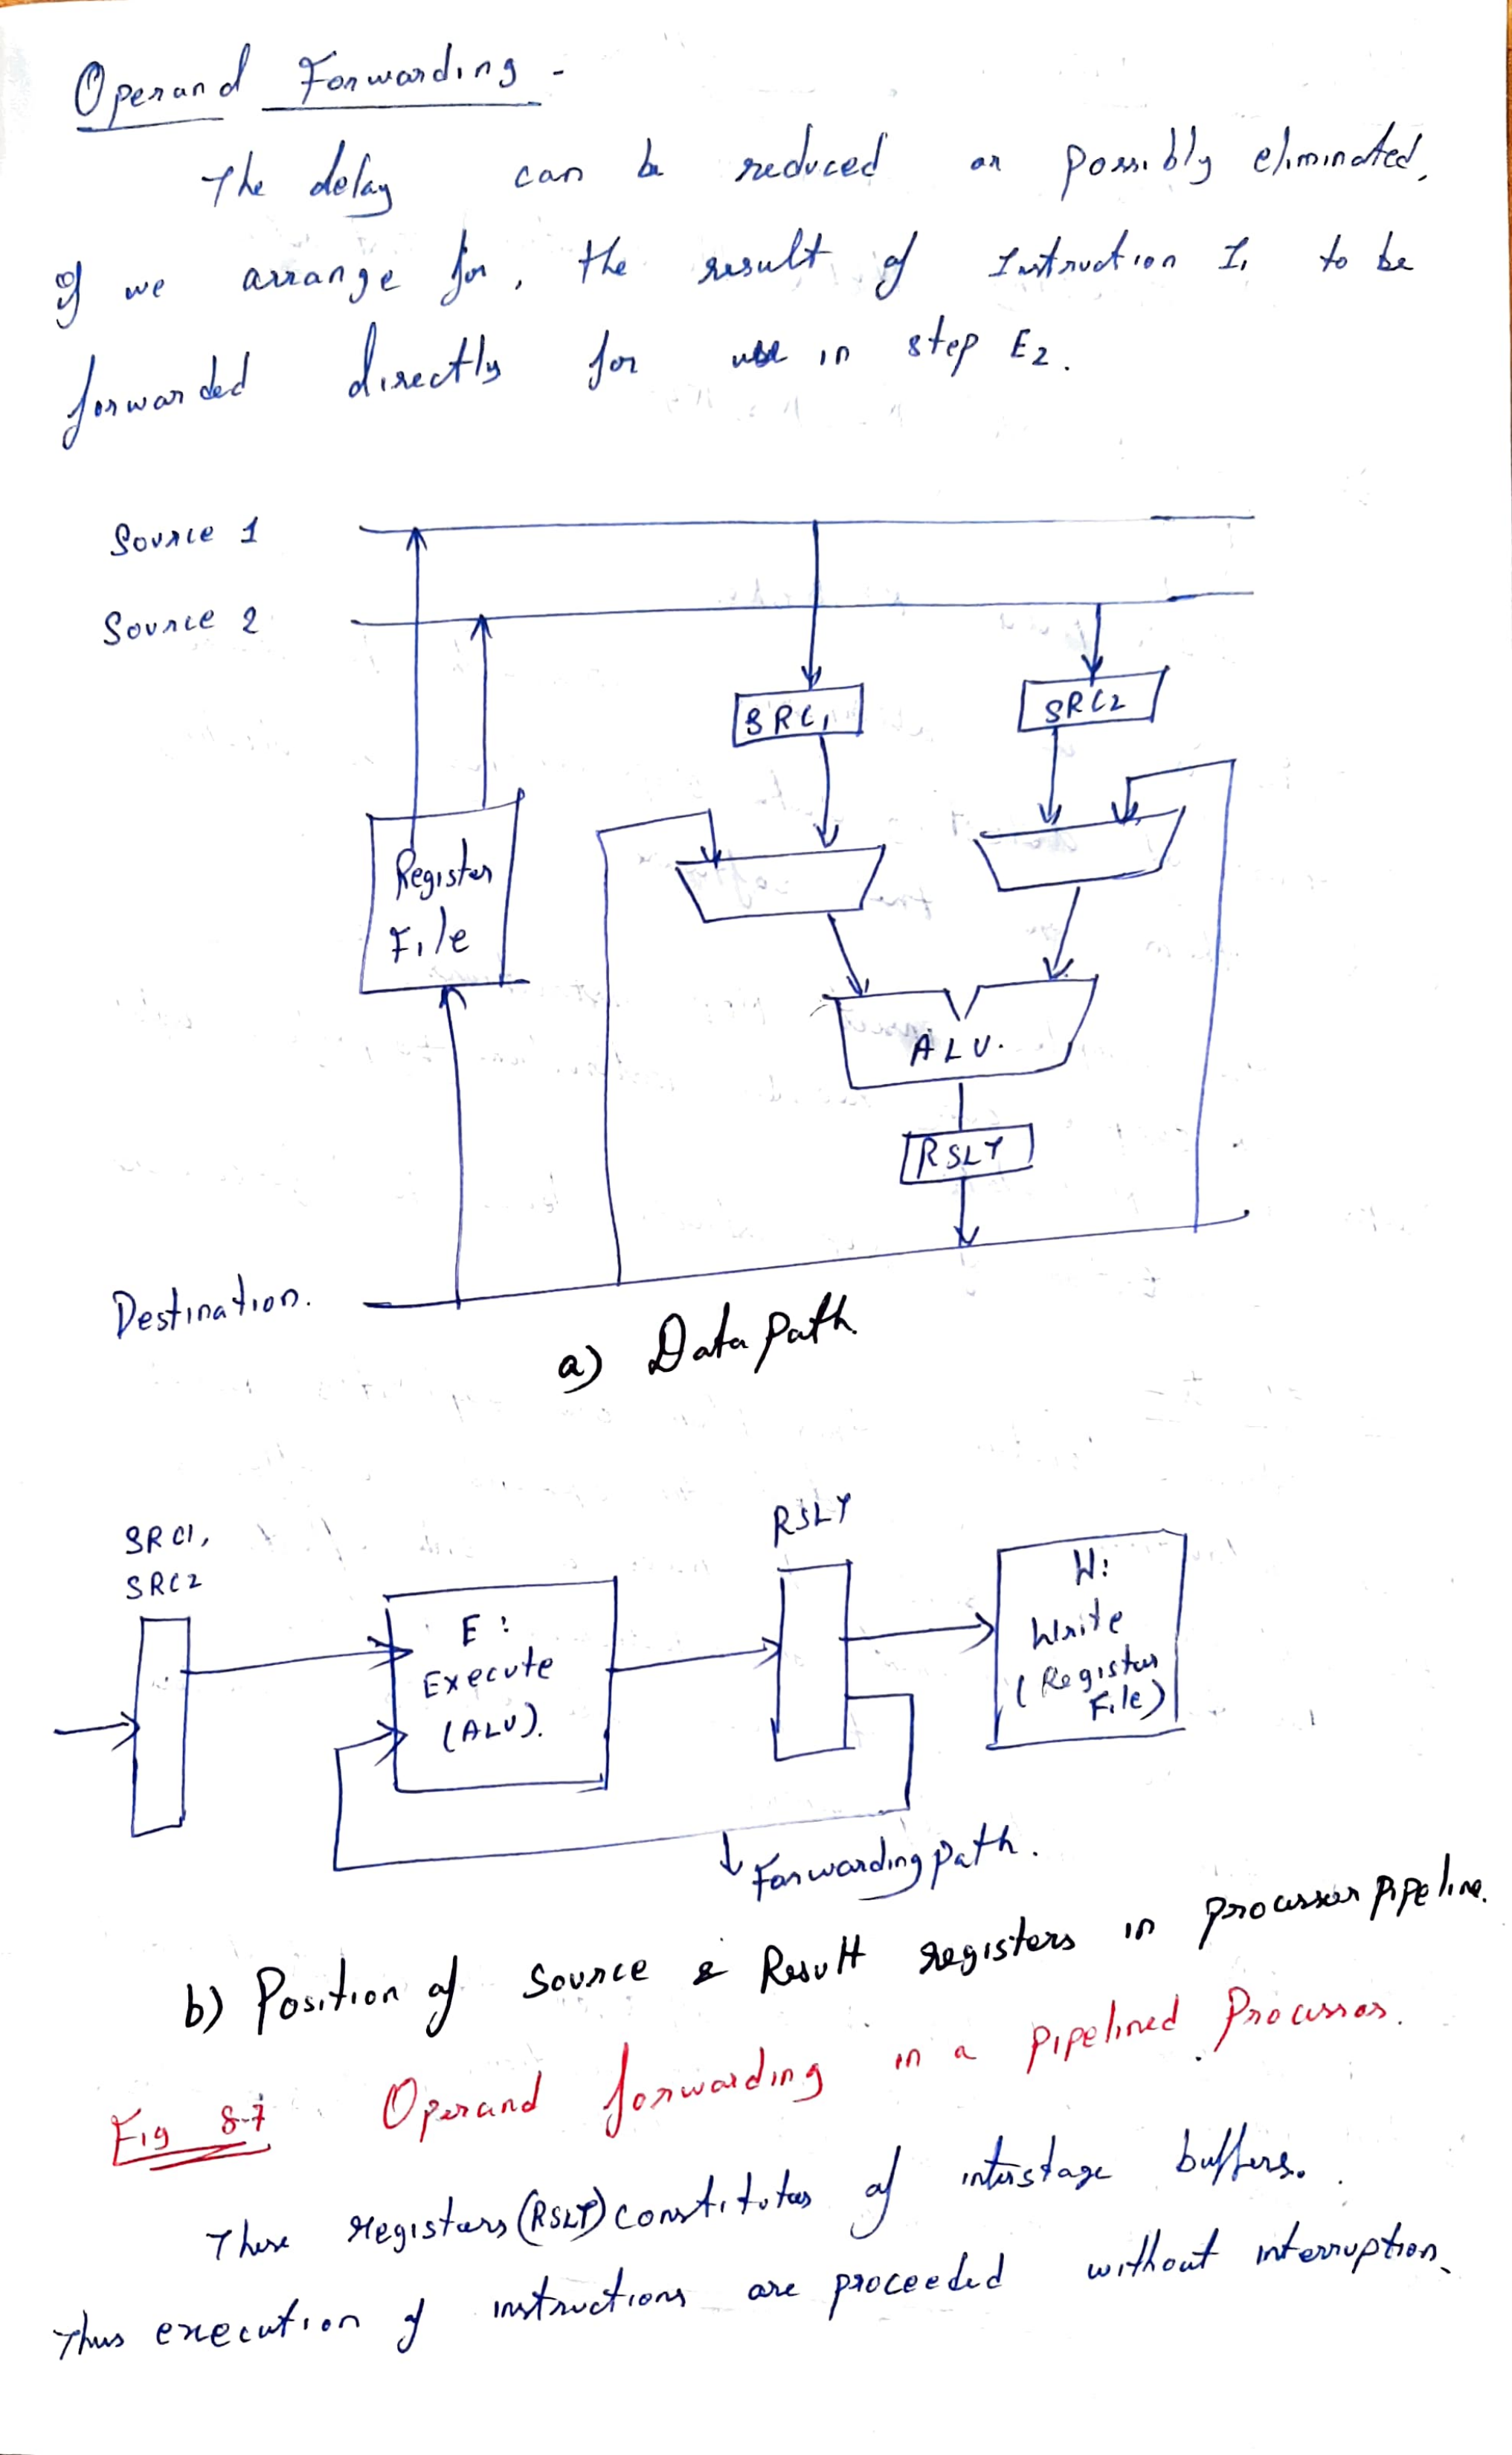 Operand Forwarding -
The delay can be reduced or possibly eliminated,
If we arrange for, the result of Instruction I1 to be
forwarded directly for use in step E2.
Source 1
Source 2
SRC1
SRC2
Register
File
ALU.
RSLT
Destination.
a) Data path
SRC1,
SRC2
RSLT
E:
Execute
(ALU).
W:
Write
(Register
File)
Forwarding path.
b) Position of Source & Result registers in processor pipeline.
Fig 8.7 Operand forwarding in a pipelined Processor.
These registers (RSLT) constitutes of interstage buffers.
Thus execution of instructions are proceeded without interruption.